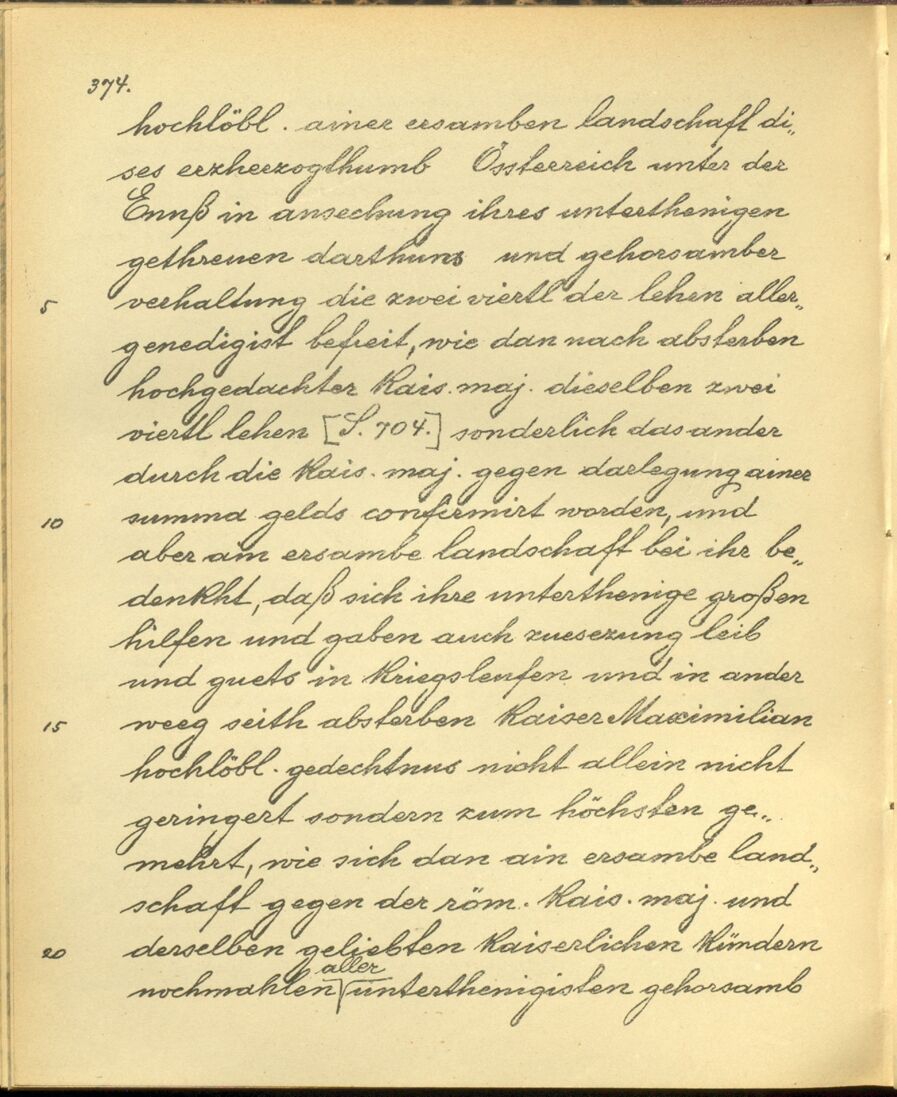 374.
hochlöbl. ainer ersamben landschaft di„
ses erzherzogthumb Össterreich unter der
Ennß in ansechung ihres unterthenigen
gethreuen darthuns und gehorsamber
5 verhaltung die zwei viertl der lehen aller„
genedigist befreit, wie dan nach absterben
hochgedachter Kais. maj. dieselben zwei
viertl lehen [S. 704.] sonderlich das ander
durch die Kais. maj. gegen darlegung ainer
10 summa gelds confermirt worden, und
aber ain ersambe landschaft bei ihr be„
denkht, daß sich ihre unterthenige großen
hilfen und gaben auch zuesezung leib
und guets in Kriegsleufen und in ander
15 weeg seith absterben Kaiser Maximilian
hochlöbl. gedechtnus nicht allein nicht
geringert sondern zum höchsten ge„
mehrt, wie sich dan ain ersambe land„
schaft gegen der röm. Kais. maj. und
20 derselben geliebten Kaiserlichen Kündern
aller
nochmahlen unterthenigisten gehorsamb